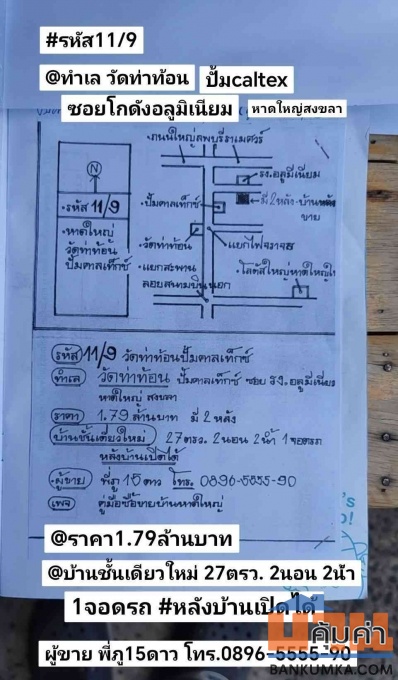 #รหัส11/9
@ทำเล วัดท่าท้อน ปั้มcaltex
ซอยโกดังอลูมิเนียม หาดใหญ่สงขลา
ถนนใหญ่ลพบุรีราเมศวร์
N
รหัส 11/9
หาดใหญ่
วัดท่าท้อน
ปั้มคาลเท็กซ์
รง.อลูมิเนียม
ปั้มคาลเท็กซ์
มี 2 หลัง
ขาย
วัดท่าท้อน
แยกไฟจราจร
แยกสะพาน
ลอยสนามบินนอก
โลตัสใหญ่หาดใหญ่ใน
รหัส 11/9 วัดท่าท้อนปั้มคาลเท็กซ์
ทำเล วัดท่าท้อน ปั้มคาลเท็กซ์ ซอย รง.อลูมิเนียม
หาดใหญ่ สงขลา
ราคา 1.79 ล้านบาท มี 2 หลัง
บ้านชั้นเดียวใหม่ 27ตรว. 2นอน 2น้ำ 1จอดรถ
หลังบ้านเปิดได้
ผู้ขาย พี่ภู 15 ดาว โทร. 0896-5555-90
เพจ คู่มือซื้อขายบ้านหาดใหญ่
@ราคา1.79ล้านบาท
@บ้านชั้นเดียวใหม่ 27ตรว. 2นอน 2น้ำ
1จอดรถ #หลังบ้านเปิดได้
ผู้ขาย พี่ภู15ดาว โทร.0896-5555-90
บ้าน
คุ้มค่า
BANKUMKA.COM